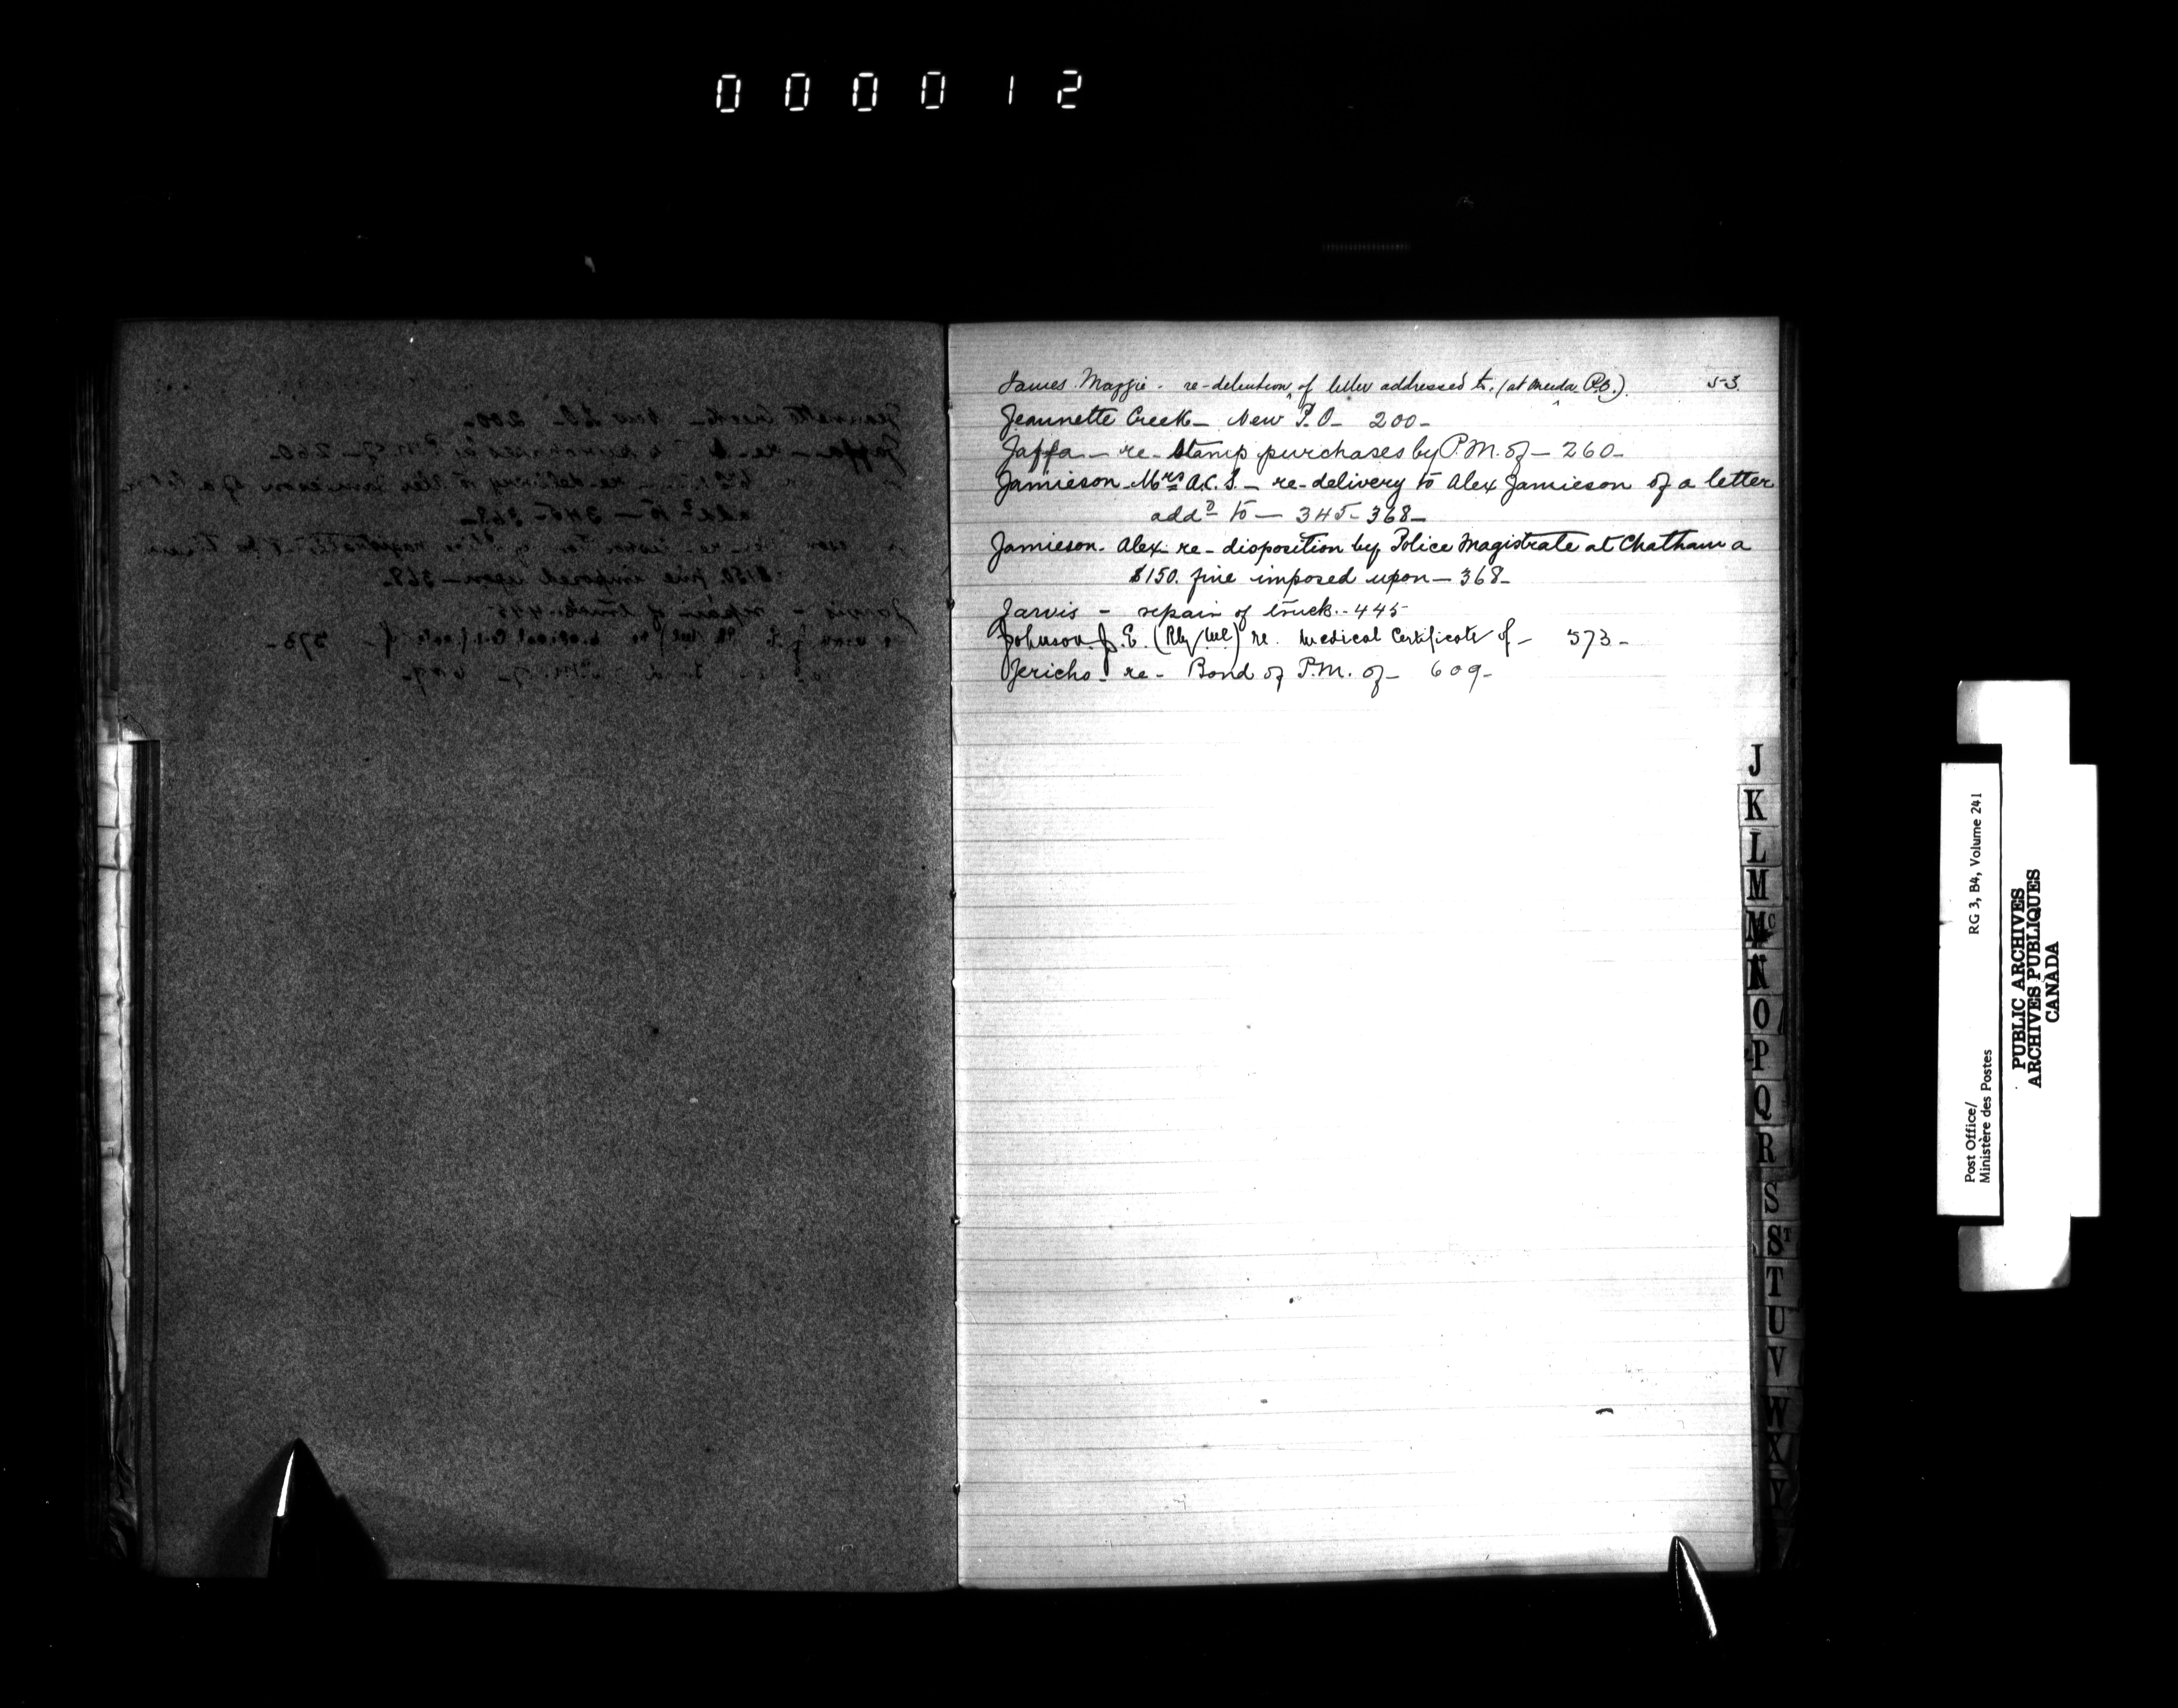 000012
James Maggie. re-detention of letter addressed to. (at Oneida P.O.) 53.
Jeannette Creek_ New P.O_ 200_
Jaffa_ re_ Stamp purchases by P.M. of_ 260_
Jamieson_Mrs A.C.S._ re-delivery to Alex Jamieson of a letter
addd to_ 345_368_
Jamieson. Alex re_disposition by Police Magistrate at Chatham a
$150. fine imposed upon_368_
Jarvis - repair of truck..445
Johnson J.E. re. Medical Certificate of_ 573_
Jericho_ re_ Bond of P.M. of_ 609_
J
K
L
M
Mc
N
O
P
Q
R
S
ST
T
U
V
W
X
Y
Post Office/
Ministère des Postes
RG 3, B4, Volume 241
PUBLIC ARCHIVES
ARCHIVES PUBLIQUES
CANADA